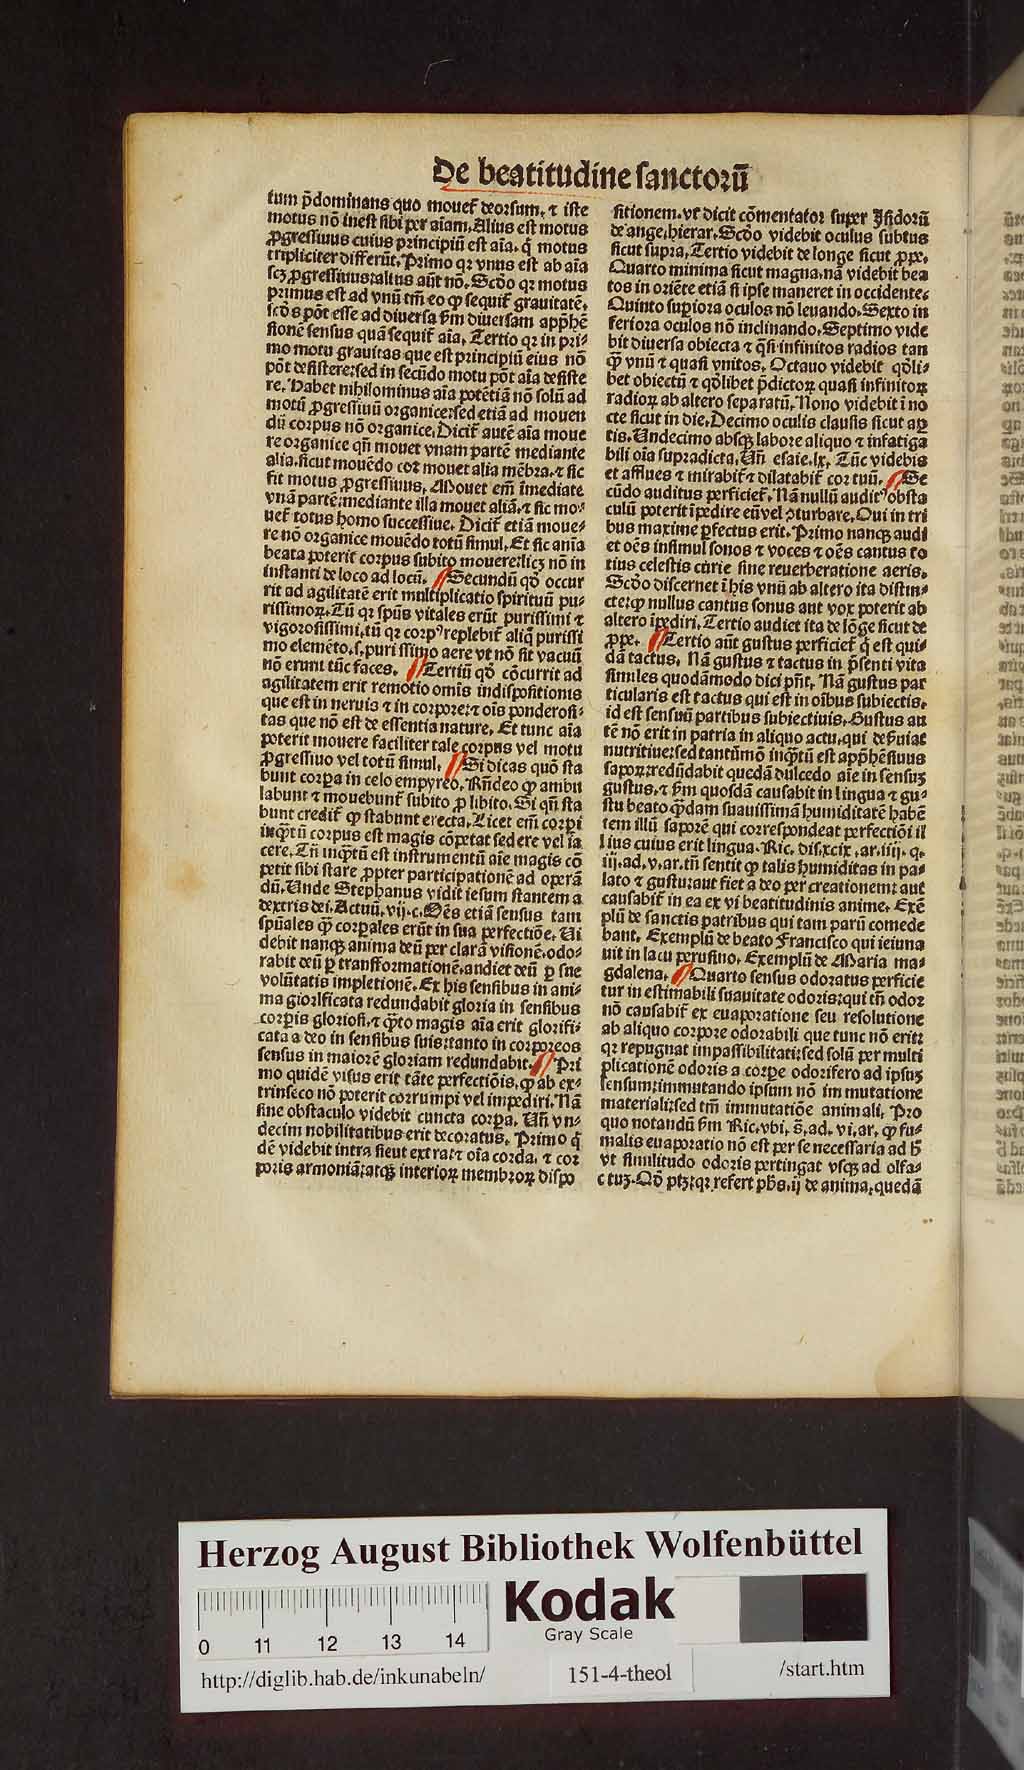 De beatitudine sanctorū
tum p̄dominans quo mouet̄ deorsum, ⁊ iste
motus nō inest sibi per aīam. Alius est motus
ꝓgressiuus cuius principiū est aīa. q̇ motus
tripliciter differūt. Primo qꝛ vnus est ab aīa
scꝫ ꝓgressiuus: alius aūt nō. Scd̓o qꝛ motus
primus est ad vnū tm̄ eo ꝙ sequit̄ grauitatē.
scd̓s pōt esse ad diuersa ẜm diuersam app̄hē
sionē sensus quā sequit̄ aīa. Tertio qꝛ in pri-
mo motu grauitas que est principiū eius nō
pōt desistere: sed in secūdo motu pōt aīa desiste
re. Habet nihilominus aīa potētiā nō solū ad
motū ꝓgressiuū organice: sed etiā ad mouen
dū corpus nō organice. Dicit̄ autē aīa moue
re organice qn̄ mouet vnam partē mediante
alia. sicut mouēdo cor mouet alia mēbra. ⁊ sic
fit motus ꝓgressiuus. Mouet em̄ īmediate
vnā partē: mediante illa mouet aliā. ⁊ sic mo-
uet̄ totus homo successiue. Dicit̄ etiā moue-
re nō organice mouēdo totū simul. Et sic anīa
beata poterit corpus subito mouere: licꝫ nō in
instanti de loco ad locū. Secundū qd̓ occur
rit ad agilitatē erit multiplicatio spirituū pu-
rissimoꝝ. Tū qꝛ spūs vitales erūt purissimi ⁊
vigorosissimi. tū qꝛ corpꝰ replebit̄ aliq̄ purissi
mo elemēto .s. purissimo aere vt nō sit vacuū
nō erunt tūc faces. Tertiū qd̓ cōcurrit ad
agilitatem erit remotio omīs indispositionis
que est in neruis ⁊ in corpore: ⁊ oīs ponderosi-
tas que nō est de essentia nature. Et tunc aīa
poterit mouere faciliter tale corpus vel motu
ꝓgressiuo vel totū simul. Si dicas quō sta
bunt corpꝑa in celo empyreo. Rn̄deo ꝙ ambu
labunt ⁊ mouebunt̄ subito ꝓ libito. Si qn̄ sta
bunt credit̄ ꝙ stabunt erecta. Licet em̄ corpi
inq̄ꝫtū corpus est magis cōpetat sedere vel ia
cere. Tn̄ inq̄ꝫtū est instrumentū aīe magis cō
petit sibi stare ꝓpter participationē ad operā
dū. Unde Stephanus vidit iesum stantem a
dextris dei. Actuū. vij. c. Oēs etiā sensus tam
spūales q̄ꝫ corꝑales erūt in sua perfectiōe. Ui
debit nanqꝫ anima deū per clarā visionē. odo-
rabit deū ꝑ transformationē. audiet deū ꝑ sue
volūtatis impletionē. Ex his sensibus in ani-
ma glorificata redundabit gloria in sensibus
corꝑis gloriosi. ⁊ q̄ꝫto magis aīa erit glorifi-
cata a deo in sensibus suis: tanto in corporeos
sensus in maiorē gloriam redundabit. Pri
mo quidē visus erit tāte perfectiōis, ꝙ ab ex-
trinseco nō poterit corrumpi vel impediri. Nā
sine obstaculo videbit cuncta corꝑa. Un̄ vn-
decim nobilitatibus erit decoratus. Primo q̇
dē videbit intra sicut extra: ⁊ oīa corda. ⁊ cor
poris armoniā: atqꝫ interioꝝ membroꝝ dispo
sitionem. vt dicit cōmentator super Isidorū
de ange. hierar. Scd̓o videbit oculus subtus
sicut supra. Tertio videbit de longe sicut ꝓpe.
Quarto minima sicut magna. nā videbit bea
tos in oriēte etiā si ipse maneret in occidente.
Quinto suꝑiora oculos nō leuando. Sexto in
feriora oculos nō inclinando. Septimo vide
bit diuersa obiecta ⁊ q̄si infinitos radios tan
q̄ꝫ vnū ⁊ quasi vnitos. Octauo videbit qd̓li-
bet obiectū ⁊ qd̓libet p̄dictoꝝ quasi infinitoꝝ
radioꝝ ab altero separatū. Nono videbit ī no
cte sicut in die. Decimo oculis clausis sicut aꝑ
tis. Undecimo absqꝫ labore aliquo ⁊ infatiga
bili oīa supradicta. Un̄ esaie. lx. Tūc videbis
et afflues ⁊ mirabit̄ ⁊ dilatabit̄ cor tuū. Se
cūdo auditus perficiet̄. Nā nullū auditꝰ obsta
culū poterit īpedire eū vel ꝯturbare. Qui in tri
bus maxime ꝑfectus erit. Primo nanqꝫ audi
et oēs insimul sonos ⁊ voces ⁊ oēs cantus to
tius celestis curie sine reuerberatione aeris.
Scd̓o discernet ī his vnū ab altero ita distin-
cte: ꝙ nullus cantus sonus aut vox poterit ab
altero īpediri. Tertio audiet ita de lōge sicut de
ꝓpe. Tertio aūt gustus perficiet̄ q̇ est qui-
dā tactus. Nā gustus ⁊ tactus in p̄senti vita
similes quodāmodo dici pn̄t. Nā gustus par
ticularis est tactus qui est in oībus subiectis.
id est sensuū partibus subiectiuis. Gustus au
tē nō erit in patria in aliquo actu. qui deẜuiat
nutritiue: sed tantūmō inq̄ꝫtū est app̄hēsiuus
saporꝫ: redūdabit quedā dulcedo aīe in sensuꝫ
gustus. ⁊ ẜm quosdā causabit in lingua ⁊ gu-
stu beato q̄ꝫdam suauissimā humiditatē habē
tem illū saporē qui correspondeat perfectiōi il
lius cuius erit lingua. Ric. dis. xcix. ar. iiij. q.
iij. ad. v. ar. tn̄ sentit ꝙ talis humiditas in pa-
lato ⁊ gustu: aut fiet a deo per creationem: aut
causabit̄ in ea ex vi beatitudinis anime. Exē
plū de sanctis patribus qui tam parū comede
bant. Exemplū de beato Francisco qui ieiuna
uit in lacu perusino. Exemplū de Maria ma-
gdalena. Quarto sensus odoratus perficie
tur in estimabili suauitate odoris: qui tn̄ odor
nō causabit̄ ex euaporatione seu resolutione
ab aliquo corpore odorabili que tunc nō erit:
qꝛ repugnat impassibilitati: sed solū per multi
plicationē odoris a corꝑe odorifero ad ipsuꝫ
sensum: immutando ipsum nō immutatione
materiali: sed tm̄ immutatiōe animali. Pro
quo notandū ẜm Ric. vbi. s̄. ad. vi. ar. ꝙ fu-
malis euaporatio nō est per se necessaria ad ħ
vt similitudo odoris pertingat vsqꝫ ad olfa-
ctuꝫ. Qd̓ ptꝫ: qꝛ refert ph̄s. ij de anima: quedā
Herzog August Bibliothek Wolfenbüttel
0 11 12 13 14
Kodak
Gray Scale
http://diglib.hab.de/inkunabeln/ 151-4-theol /start.htm